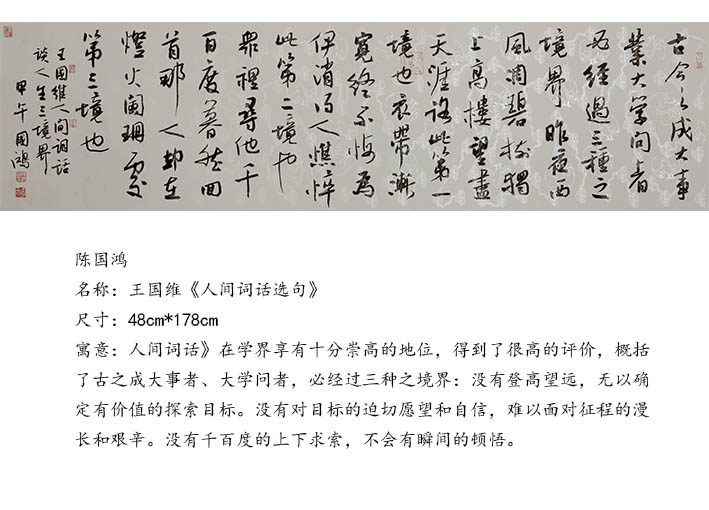 古今之成大事
業大学问者
必经過三種之
境界昨夜西
風凋碧樹獨
上高樓望盡
天涯路此第一
境也衣帶漸
寬終不悔為
伊消得人憔悴
此第二境也
眾裡尋他千
百度暮然回
首那人却在
燈火阑珊處
第三境也
王国维人间词话
谈人生三境界
甲午国鸿
陈国鸿
名称：王国维《人间词话选句》
尺寸：48cm*178cm
寓意：人间词话》在学界享有十分崇高的地位，得到了很高的评价，概括
了古之成大事者、大学问者，必经过三种之境界：没有登高望远，无以确
定有价值的探索目标。没有对目标的迫切愿望和自信，难以面对征程的漫
长和艰辛。没有千百度的上下求索，不会有瞬间的顿悟。